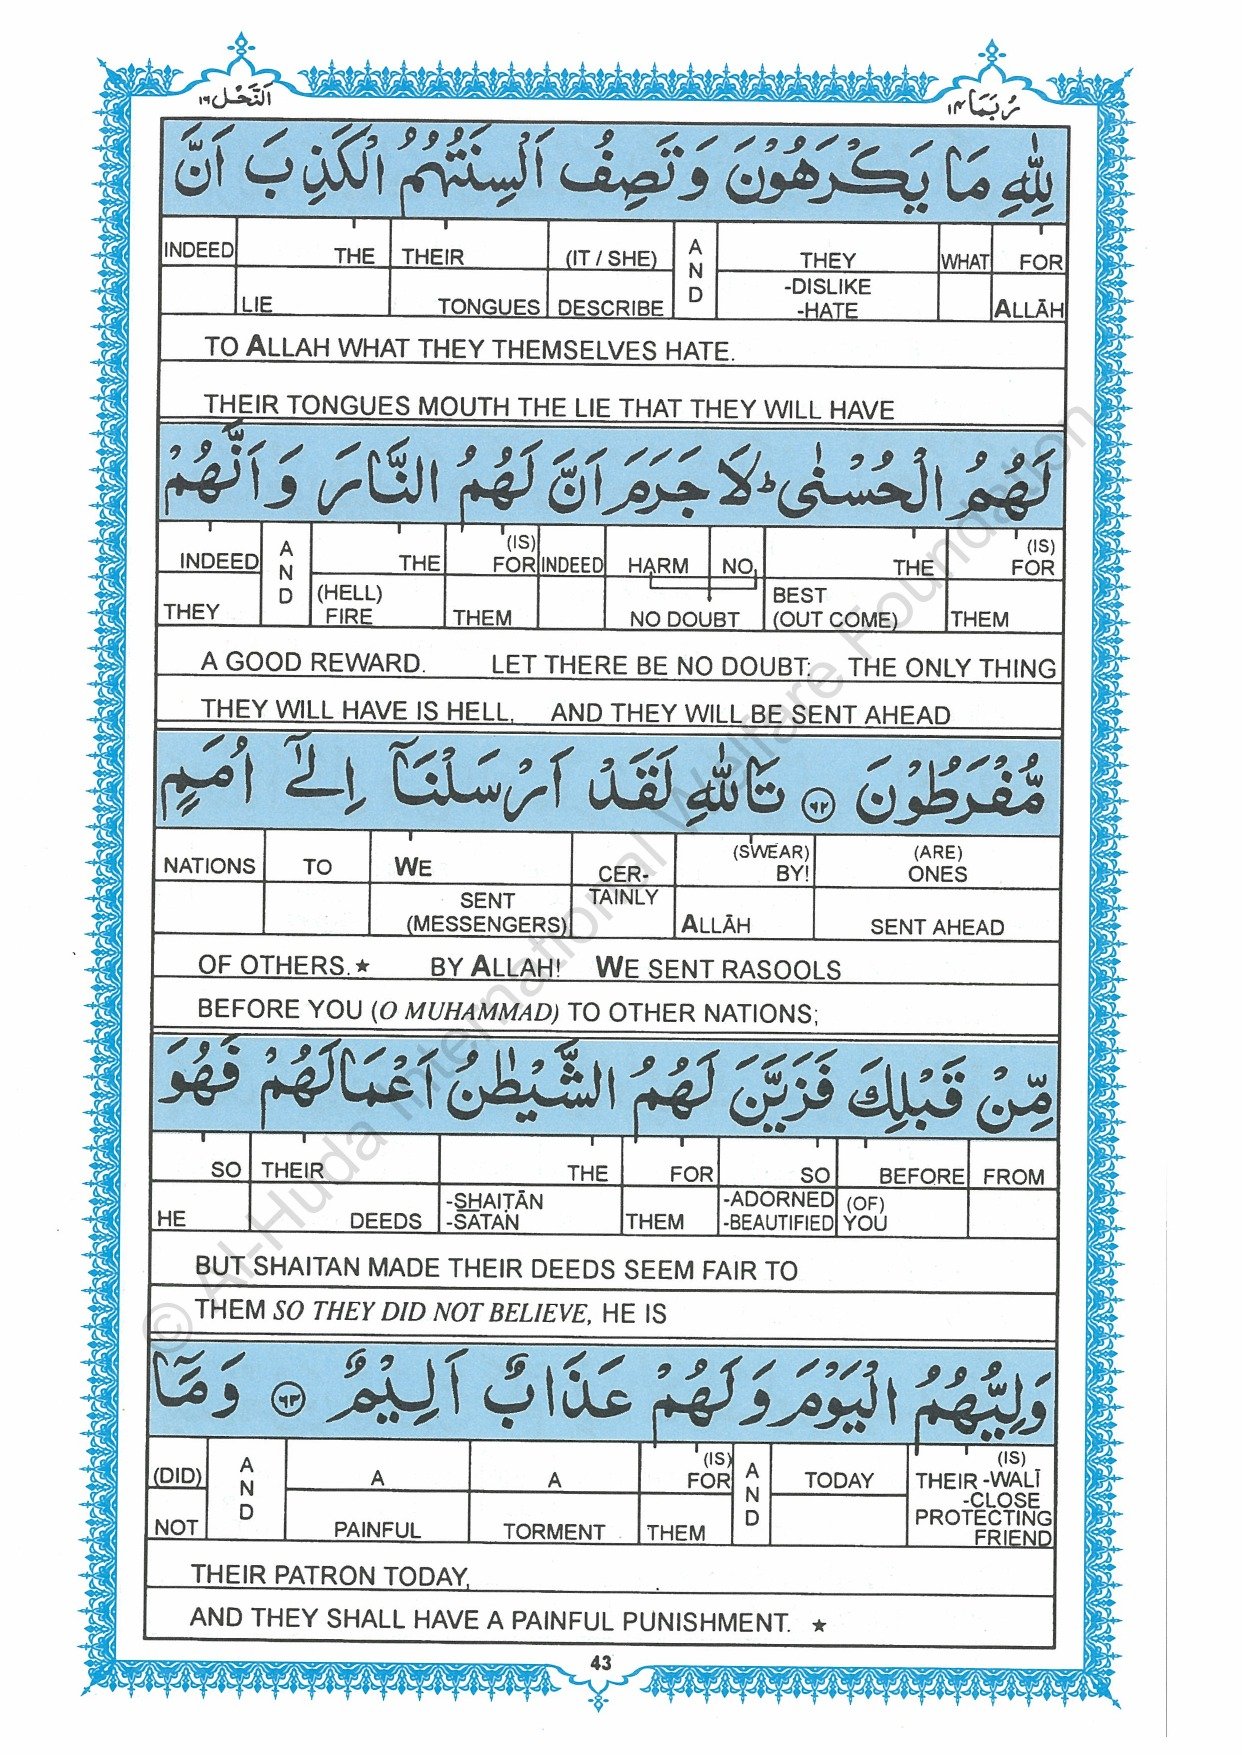 رُبَمَا ۱۴ اَلنَّحْل ۱۶
لِلّٰهِ مَا يَكْرَهُوْنَ وَ تَصِفُ اَلْسِنَتُهُمُ الْكَذِبَ اَنَّ
INDEED THE THEIR (IT / SHE) AND THEY WHAT FOR
LIE TONGUES DESCRIBE -DISLIKE -HATE ALLĀH
TO ALLAH WHAT THEY THEMSELVES HATE.
THEIR TONGUES MOUTH THE LIE THAT THEY WILL HAVE
لَهُمُ الْحُسْنٰى ؕ لَا جَرَمَ اَنَّ لَهُمُ النَّارَ وَ اَنَّهُمْ
INDEED AND THE (IS) FOR INDEED HARM NO THE (IS) FOR
THEY (HELL) FIRE THEM NO DOUBT BEST (OUT COME) THEM
A GOOD REWARD. LET THERE BE NO DOUBT: THE ONLY THING
THEY WILL HAVE IS HELL, AND THEY WILL BE SENT AHEAD
مُّفْرَطُوْنَ ۶۲ تَاللّٰهِ لَقَدْ اَرْسَلْنَاۤ اِلٰۤى اُمَمٍ
NATIONS TO WE CER- TAINLY (SWEAR) BY! (ARE) ONES
SENT (MESSENGERS) ALLĀH SENT AHEAD
OF OTHERS.★ BY ALLAH! WE SENT RASOOLS
BEFORE YOU (O MUHAMMAD) TO OTHER NATIONS;
مِّنْ قَبْلِكَ فَزَيَّنَ لَهُمُ الشَّيْطٰنُ اَعْمَالَهُمْ فَهُوَ
SO THEIR THE FOR SO BEFORE FROM
HE DEEDS -SHAIṬĀN -SATAN THEM -ADORNED -BEAUTIFIED (OF) YOU
BUT SHAITAN MADE THEIR DEEDS SEEM FAIR TO
THEM SO THEY DID NOT BELIEVE, HE IS
وَلِيُّهُمُ الْيَوْمَ وَ لَهُمْ عَذَابٌ اَلِيْمٌ ۶۳ وَ مَاۤ
(DID) AND A A (IS) FOR AND TODAY THEIR (IS) -WALĪ
NOT PAINFUL TORMENT THEM -CLOSE PROTECTING FRIEND
THEIR PATRON TODAY,
AND THEY SHALL HAVE A PAINFUL PUNISHMENT. ★
43
© Al-Huda International Welfare Foundation